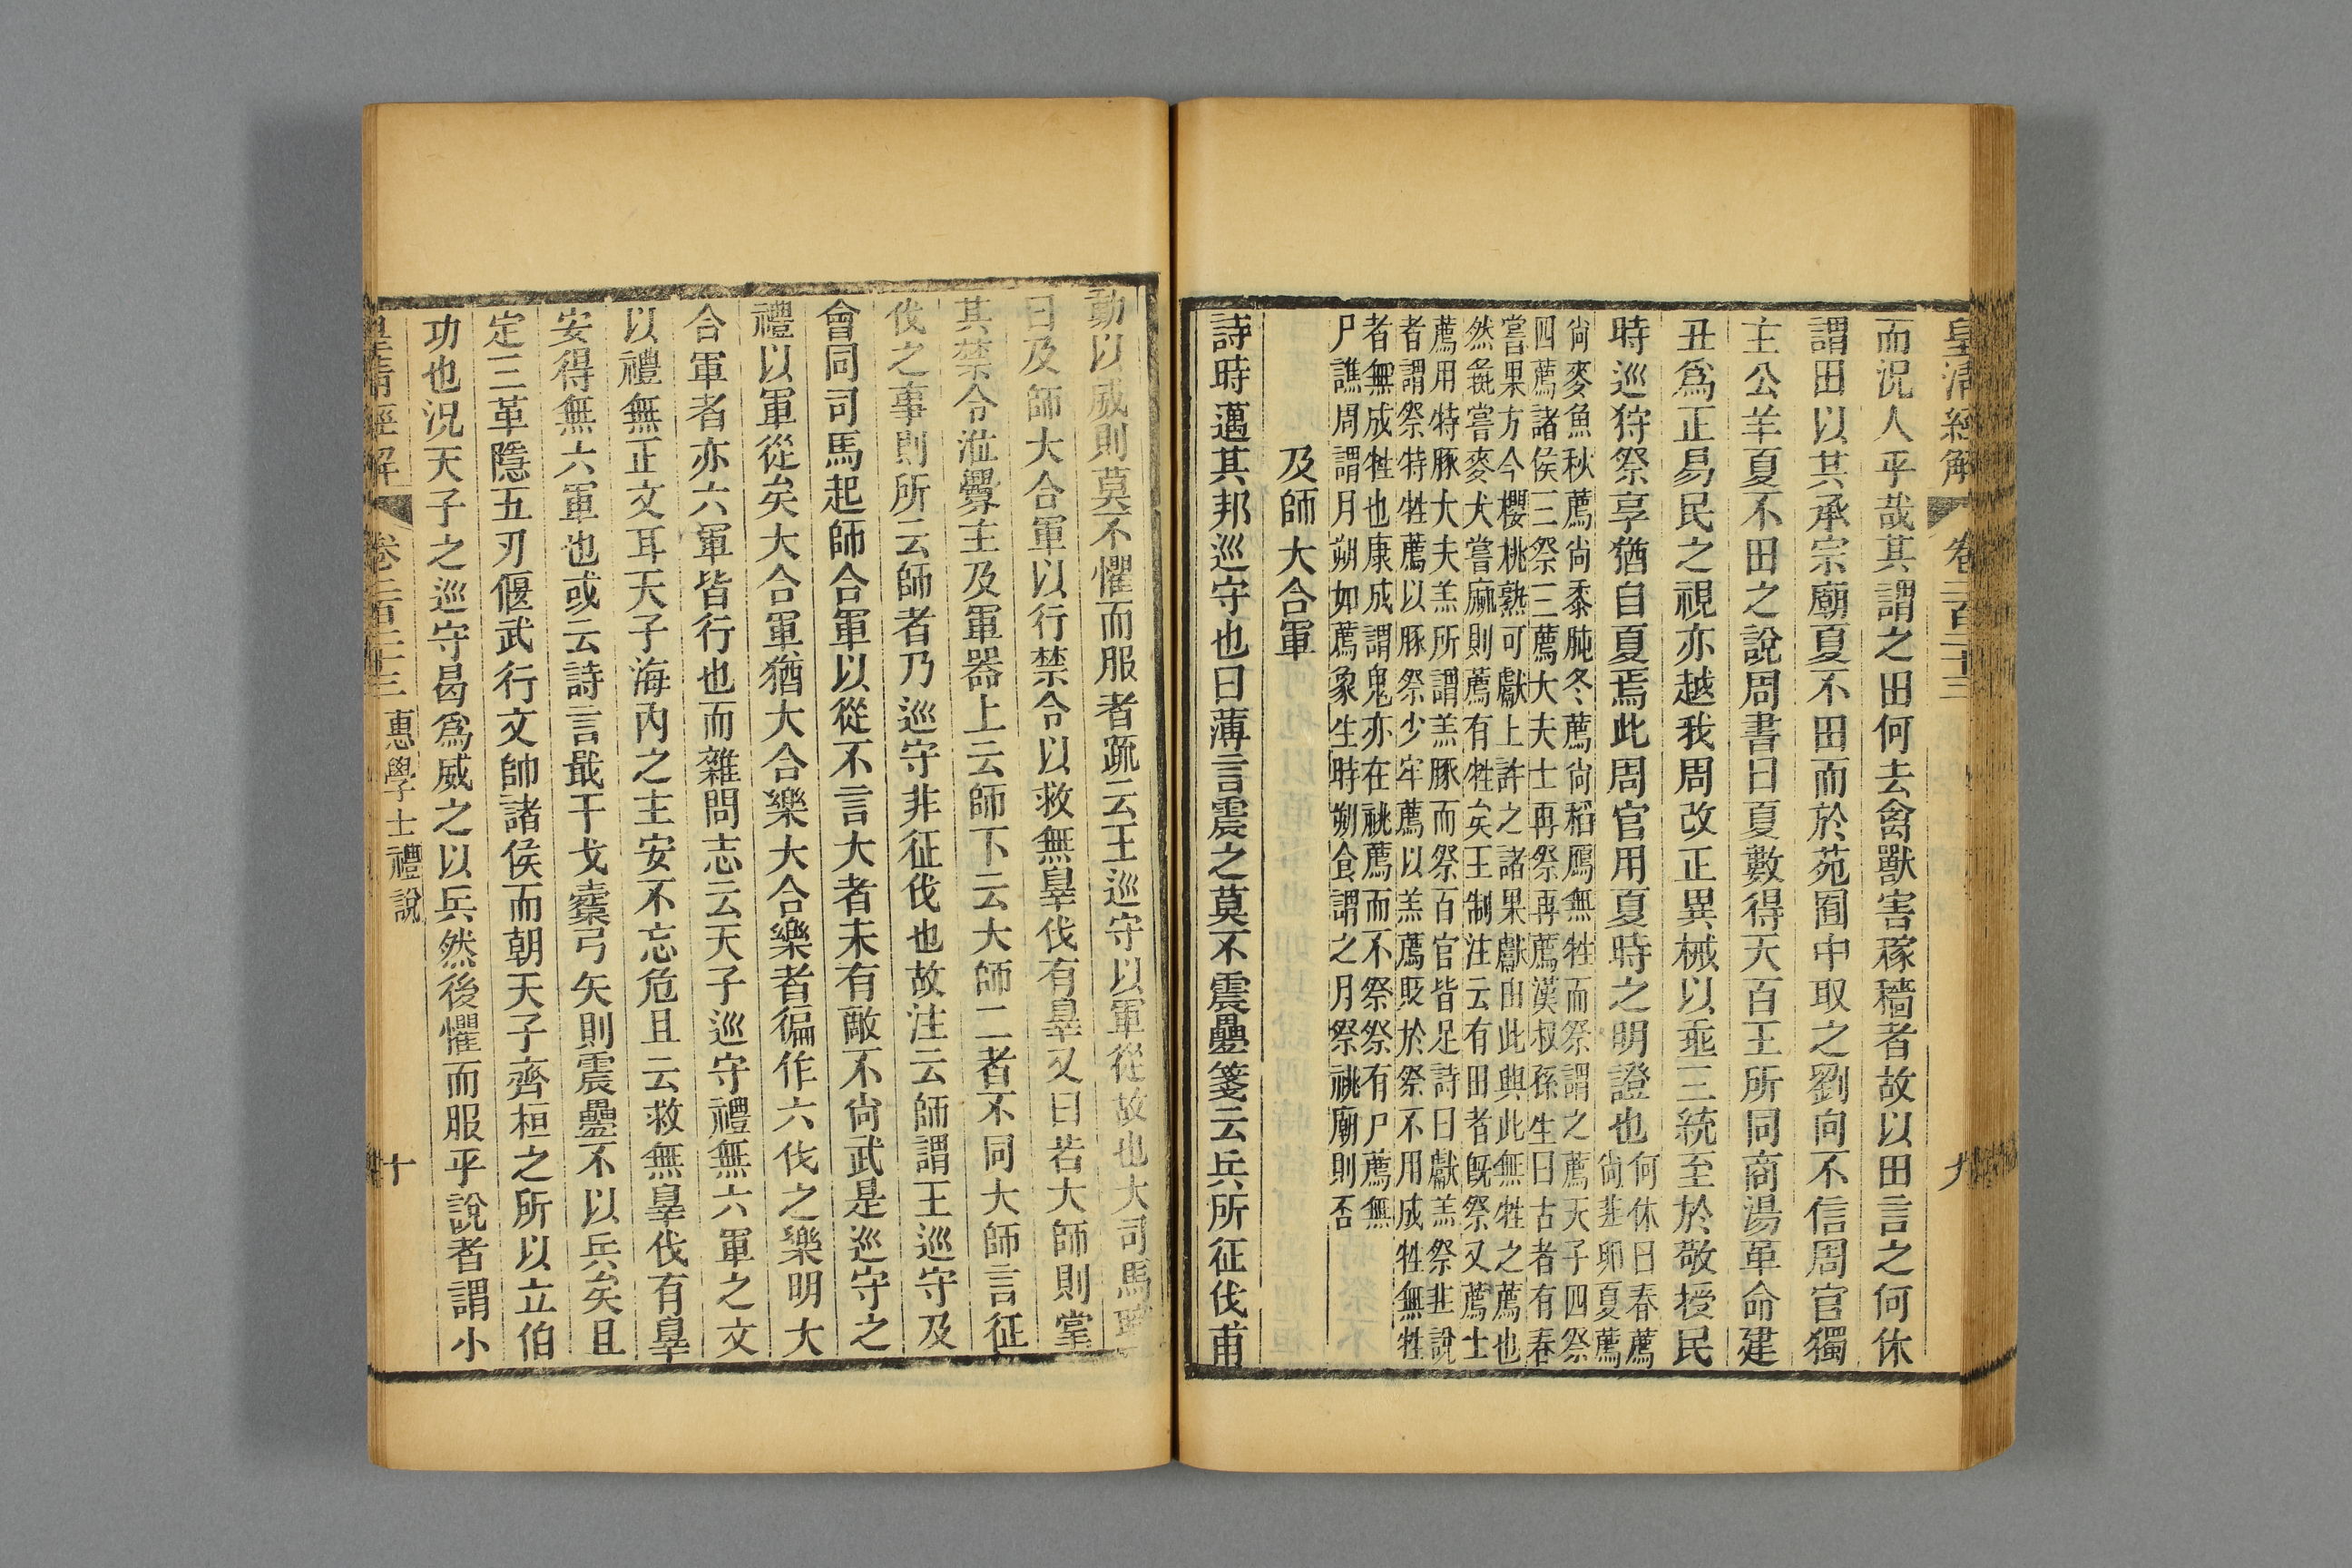 皇清經解 卷二百二十三 九
而況人乎哉其謂之田何去禽獸害稼穡者故以田言之何休
謂田以其承宗廟夏不田而於苑囿中取之劉向不信周官獨
主公羊夏不田之說周書曰夏數得天百王所同商湯革命建
丑爲正易民之視亦越我周改正異械以垂三統至於敬授民
時巡狩祭享猶自夏焉此周官用夏時之明證也
何休曰春薦
尙韭卵夏薦
尙麥魚秋薦尙黍肫冬薦尙稻鴈無牲而祭謂之薦天子四祭
四薦諸侯三祭三薦大夫士再祭再薦漢叔孫生曰古者有春
嘗果方今櫻桃熟可獻上許之諸果獻由此興此無牲之薦也
然彘嘗麥犬嘗麻則薦有牲矣王制注云有田者旣祭又薦士
薦用特豚大夫羔所謂羔豚而祭百官皆足詩曰獻羔祭韭說
者謂祭特牲薦以豚祭少牢薦以羔薦貶於祭不用成牲無牲
者無成牲也康成謂鬼亦在祧薦而不祭祭有尸薦無
尸譙周謂月朔如薦象生時朔食謂之月祭祧廟則否
及師大合軍
詩時邁其邦巡守也曰薄言震之莫不震疊箋云兵所征伐甫
動以威則莫不懼而服者疏云王巡守以軍從故也大司馬職
曰及師大合軍以行禁令以救無辠伐有辠又曰若大師則掌
其禁令涖釁主及軍器上云師下云大師二者不同大師言征
伐之事則所云師者乃巡守非征伐也故注云師謂王巡守及
會同司馬起師合軍以從不言大者未有敵不尙武是巡守之
禮以軍從矣大合軍猶大合樂大合樂者徧作六代之樂明大
合軍者亦六軍皆行也而雜問志云天子巡守禮無六軍之文
以禮無正文耳天子海內之主安不忘危且云救無辠伐有辠
安得無六軍也或云詩言戢干戈櫜弓矢則震疊不以兵矣且
定三革隱五刃偃武行文帥諸侯而朝天子齊桓之所以立伯
功也況天子之巡守曷爲威之以兵然後懼而服乎說者謂小
皇清經解 卷二百二十三 惠學士禮說 十